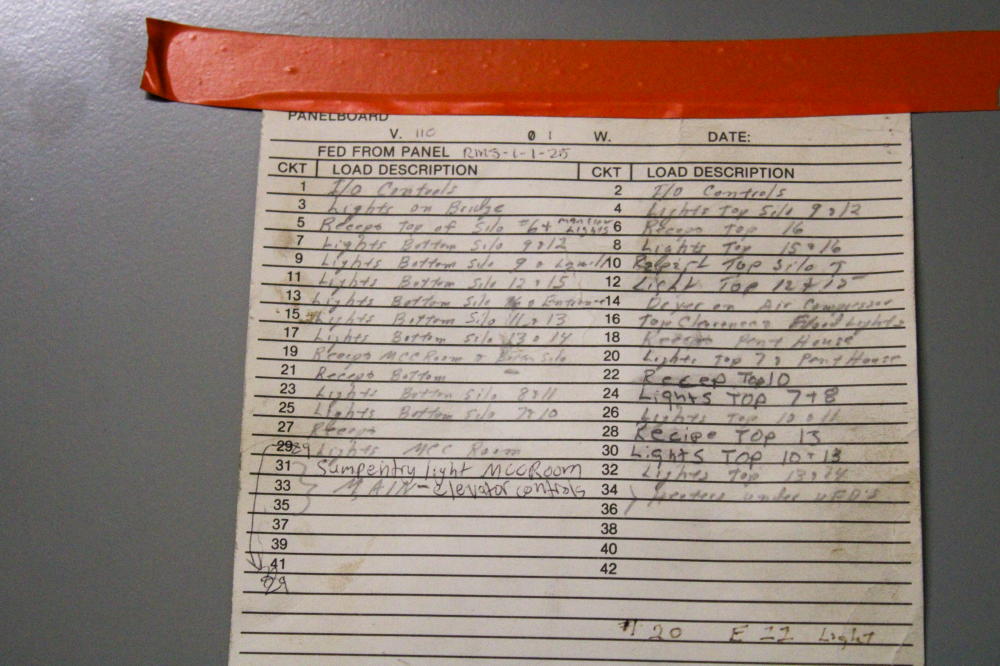 PANELBOARD
V. 110 Ø 1 W. DATE:
FED FROM PANEL RMS-1-1-25
CKT LOAD DESCRIPTION CKT LOAD DESCRIPTION
1 I/O Controls 2 I/O Controls
3 Lights on Bridge 4 Lights Top Silo 9 & 12
5 Recept Top of Silo #6 + Lights 6 Recept Top 16
7 Lights Bottom Silo 9 & 12 8 Lights Top 15 + 16
9 Lights Bottom Silo 9 & 10 Top Silo 9
11 Lights Bottom Silo 12 & 15 12 Light Top 12 + 15
13 Lights Bottom Silo 16 & 14 Air Compressor
15 Lights Bottom Silo 11 & 13 16 Top Flood Lights
17 Lights Bottom Silo 13 & 14 18 Recept Pent House
19 Recept MCC Room & Silo 20 Lights Top 7 & Pent House
21 Recept Bottom 22 Recep Top 10
23 Lights Bottom Silo 8 & 11 24 Lights Top 7+8
25 Lights Bottom Silo 7 & 10 26 Lights Top 10 & 11
27 Recept 28 Recipe Top 13
29 Lights MCC Room 30 Lights Top 10 + 13
31 Sumpentry light MCC Room 32 Lights Top 13 & 14
33 MAIN - elevator controls 34 Heaters under VFD'S
35 36
37 38
39 40
41 42
29
#20 E 11 Light